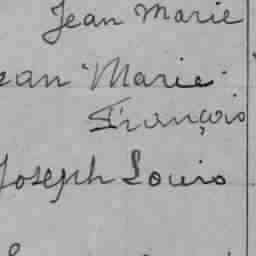 Jean Marie
ean Marie
François
Joseph Louis